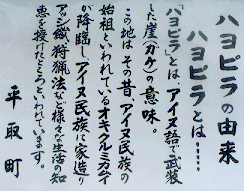 ハヨピラの由来
ハヨピラとは‥‥‥
「ハヨピラ」とは、アイヌ語で武装
した崖(ガケ)の意味。
この地は その昔、アイヌ民族の
始祖といわれているオキクルミカムイ
が降臨し、アイヌ民族に家造り
アシ織、狩猟法など様々な生活の知
恵を授けたところといわれています。
平取町